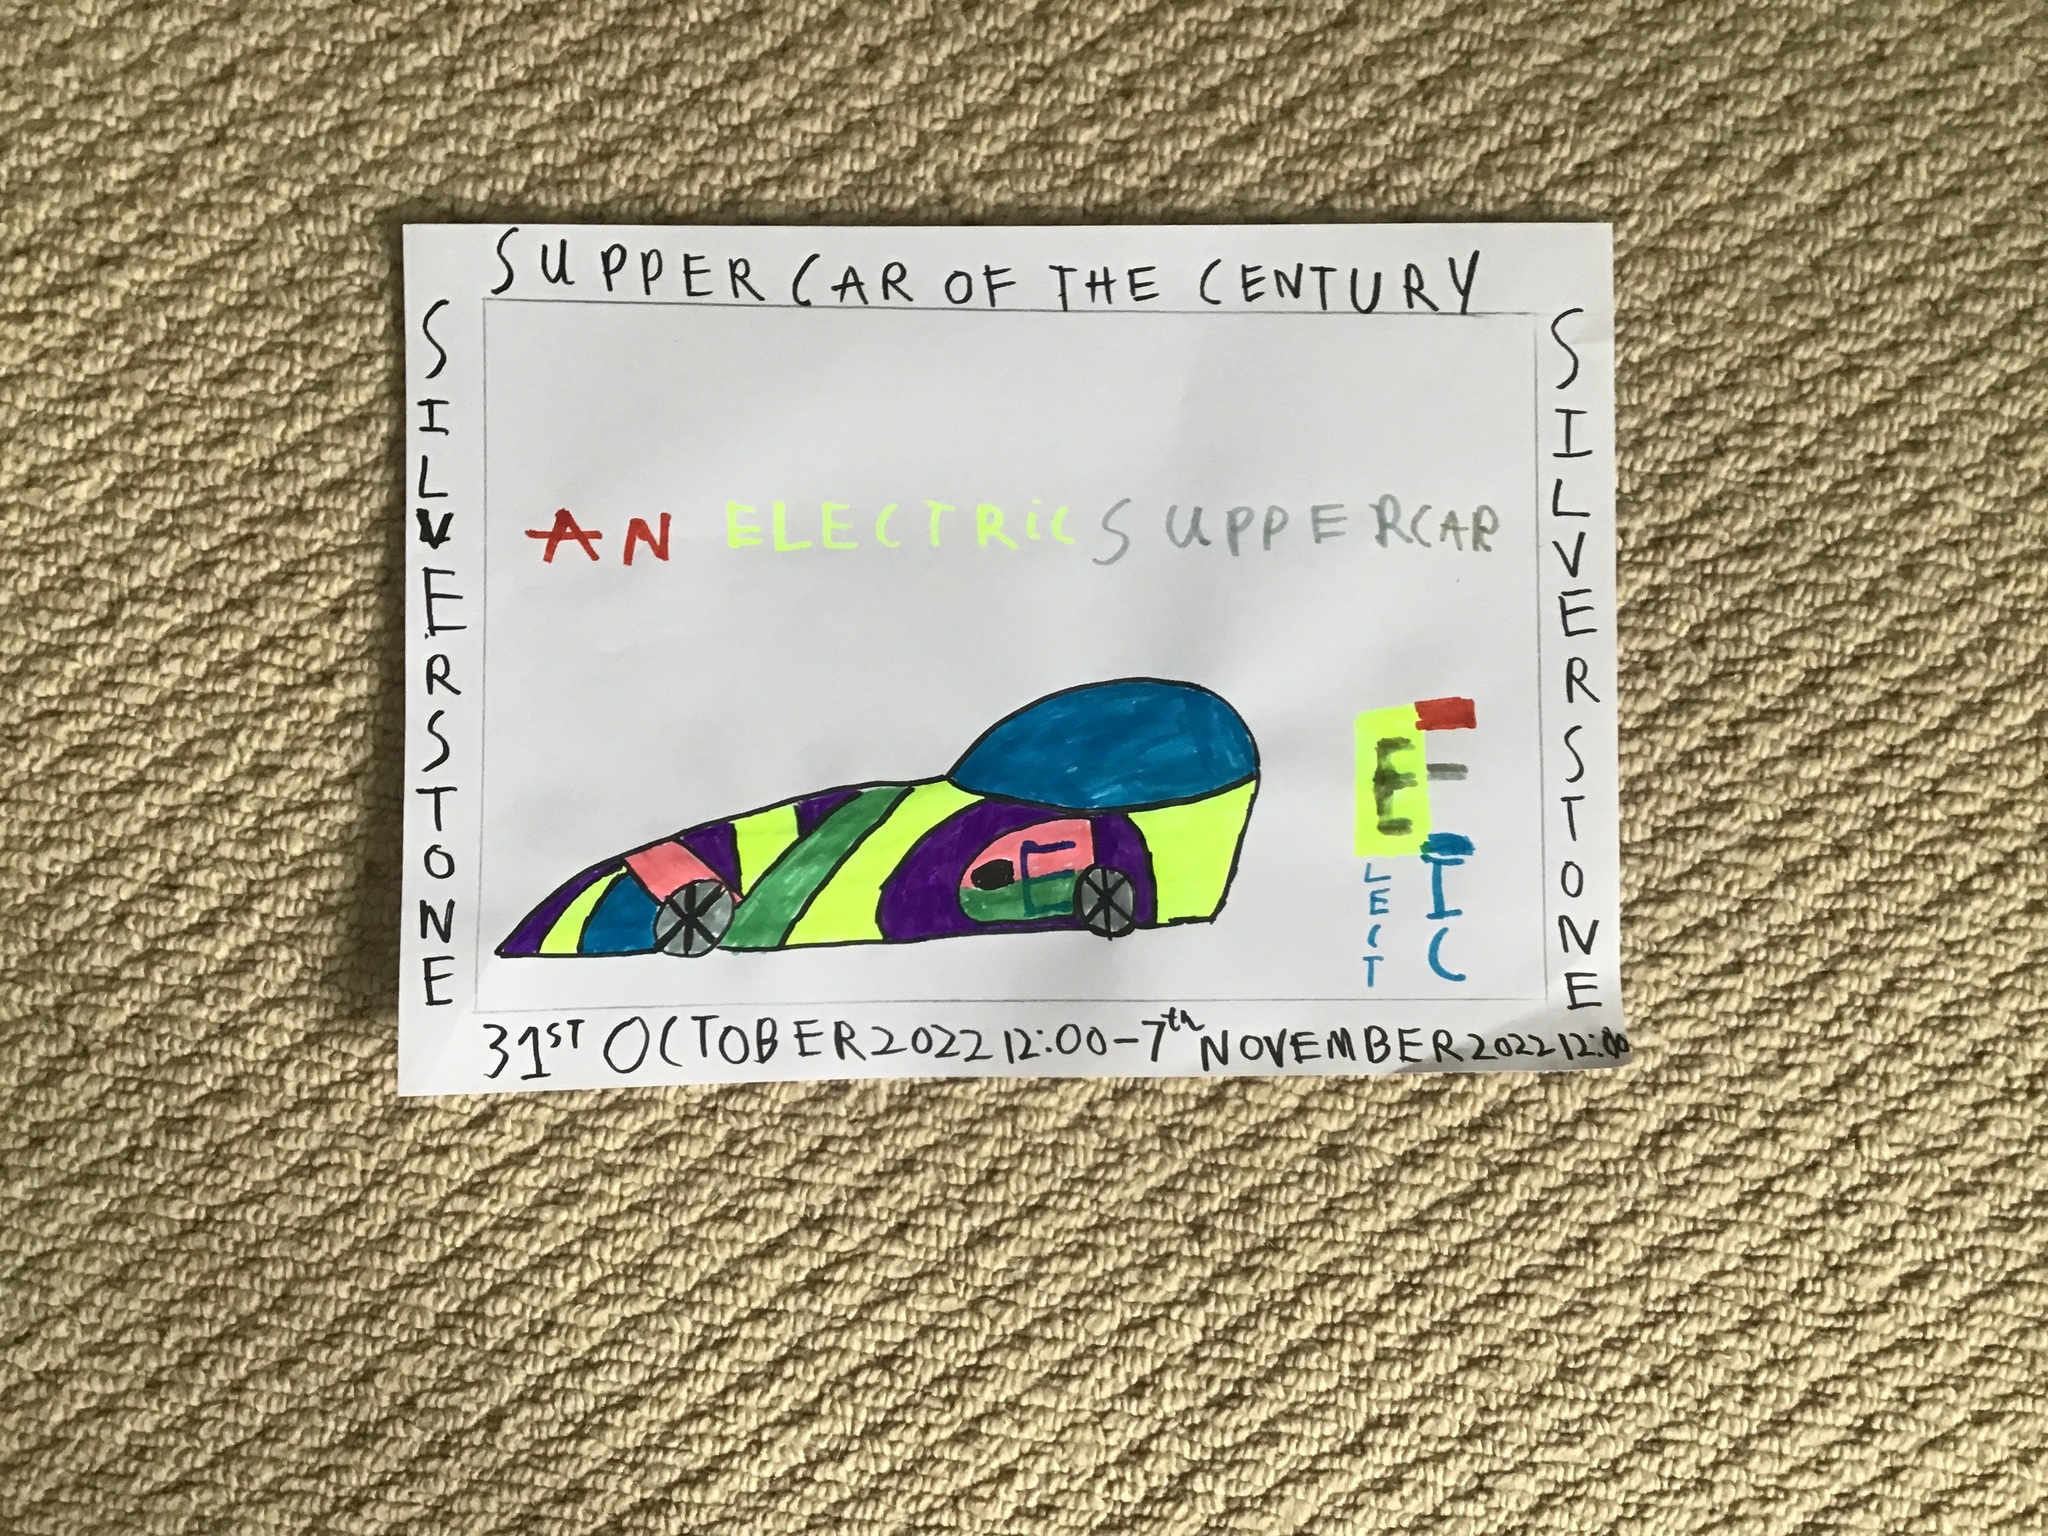 SUPPER CAR OF THE CENTURY
SILVERSTONE
AN ELECTRIC SUPPERCAR
E
E
LECT
IC
SILVERSTONE
31ST OCTOBER 2022 12:00-7th NOVEMBER 2022 12:00